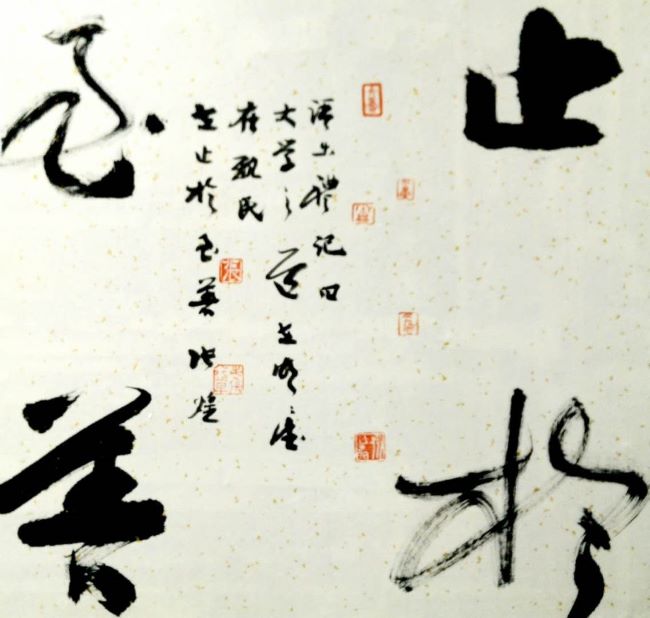 止於
至善
语出禮记曰
大学之道在明明德
在親民
在止於至善 张
張